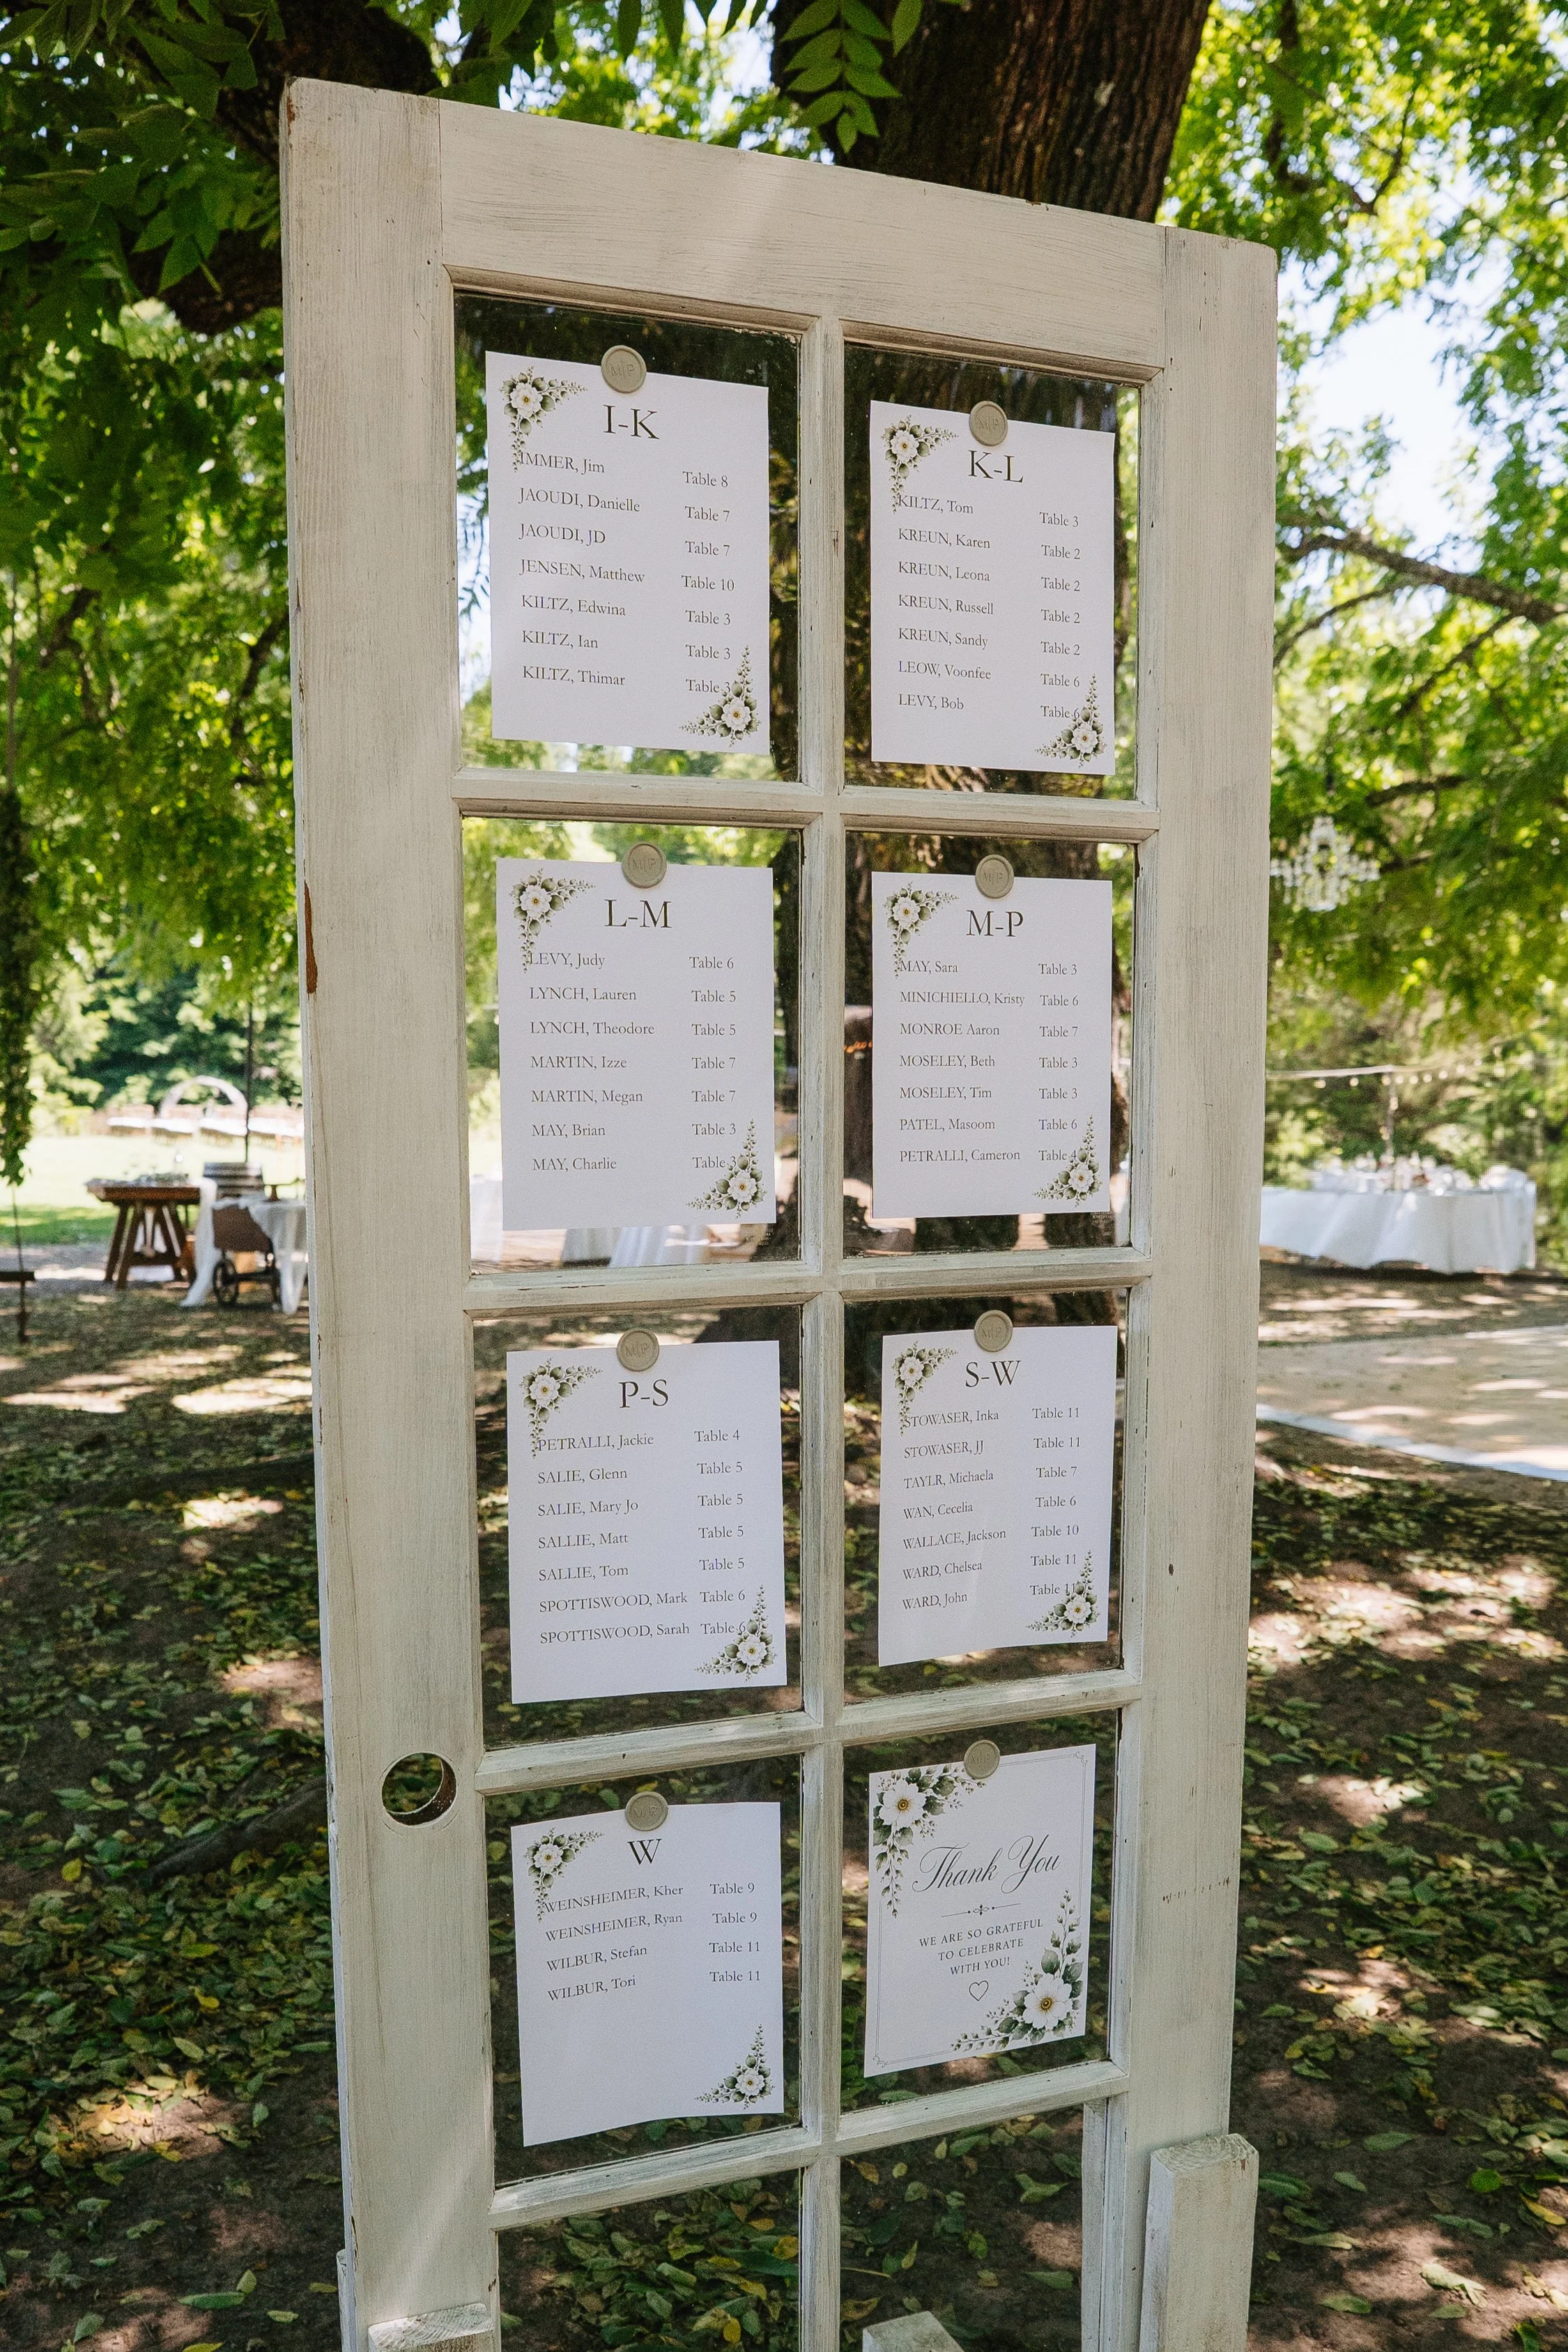 M|P
I-K
IMMER, Jim Table 8
JAOUDI, Danielle Table 7
JAOUDI, JD Table 7
JENSEN, Matthew Table 10
KILTZ, Edwina Table 3
KILTZ, Ian Table 3
KILTZ, Thimar Table 3
M|P
K-L
KILTZ, Tom Table 3
KREUN, Karen Table 2
KREUN, Leona Table 2
KREUN, Russell Table 2
KREUN, Sandy Table 2
LEOW, Voonfee Table 6
LEVY, Bob Table 6
M|P
L-M
LEVY, Judy Table 6
LYNCH, Lauren Table 5
LYNCH, Theodore Table 5
MARTIN, Izze Table 7
MARTIN, Megan Table 7
MAY, Brian Table 3
MAY, Charlie Table 3
M|P
M-P
MAY, Sara Table 3
MINICHIELLO, Kristy Table 6
MONROE Aaron Table 7
MOSELEY, Beth Table 3
MOSELEY, Tim Table 3
PATEL, Masoom Table 6
PETRALLI, Cameron Table 4
M|P
P-S
PETRALLI, Jackie Table 4
SALIE, Glenn Table 5
SALIE, Mary Jo Table 5
SALLIE, Matt Table 5
SALLIE, Tom Table 5
SPOTTISWOOD, Mark Table 6
SPOTTISWOOD, Sarah Table 6
M|P
S-W
STOWASER, Inka Table 11
STOWASER, JJ Table 11
TAYLR, Michaela Table 7
WAN, Cecelia Table 6
WALLACE, Jackson Table 10
WARD, Chelsea Table 11
WARD, John Table 11
M|P
W
WEINSHEIMER, Kher Table 9
WEINSHEIMER, Ryan Table 9
WILBUR, Stefan Table 11
WILBUR, Tori Table 11
M|P
Thank You
WE ARE SO GRATEFUL
TO CELEBRATE
WITH YOU!